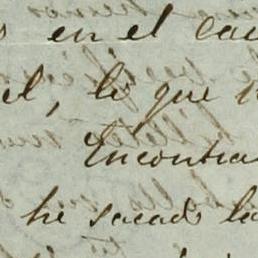 en el
el, li que
Encontra
he sacado la